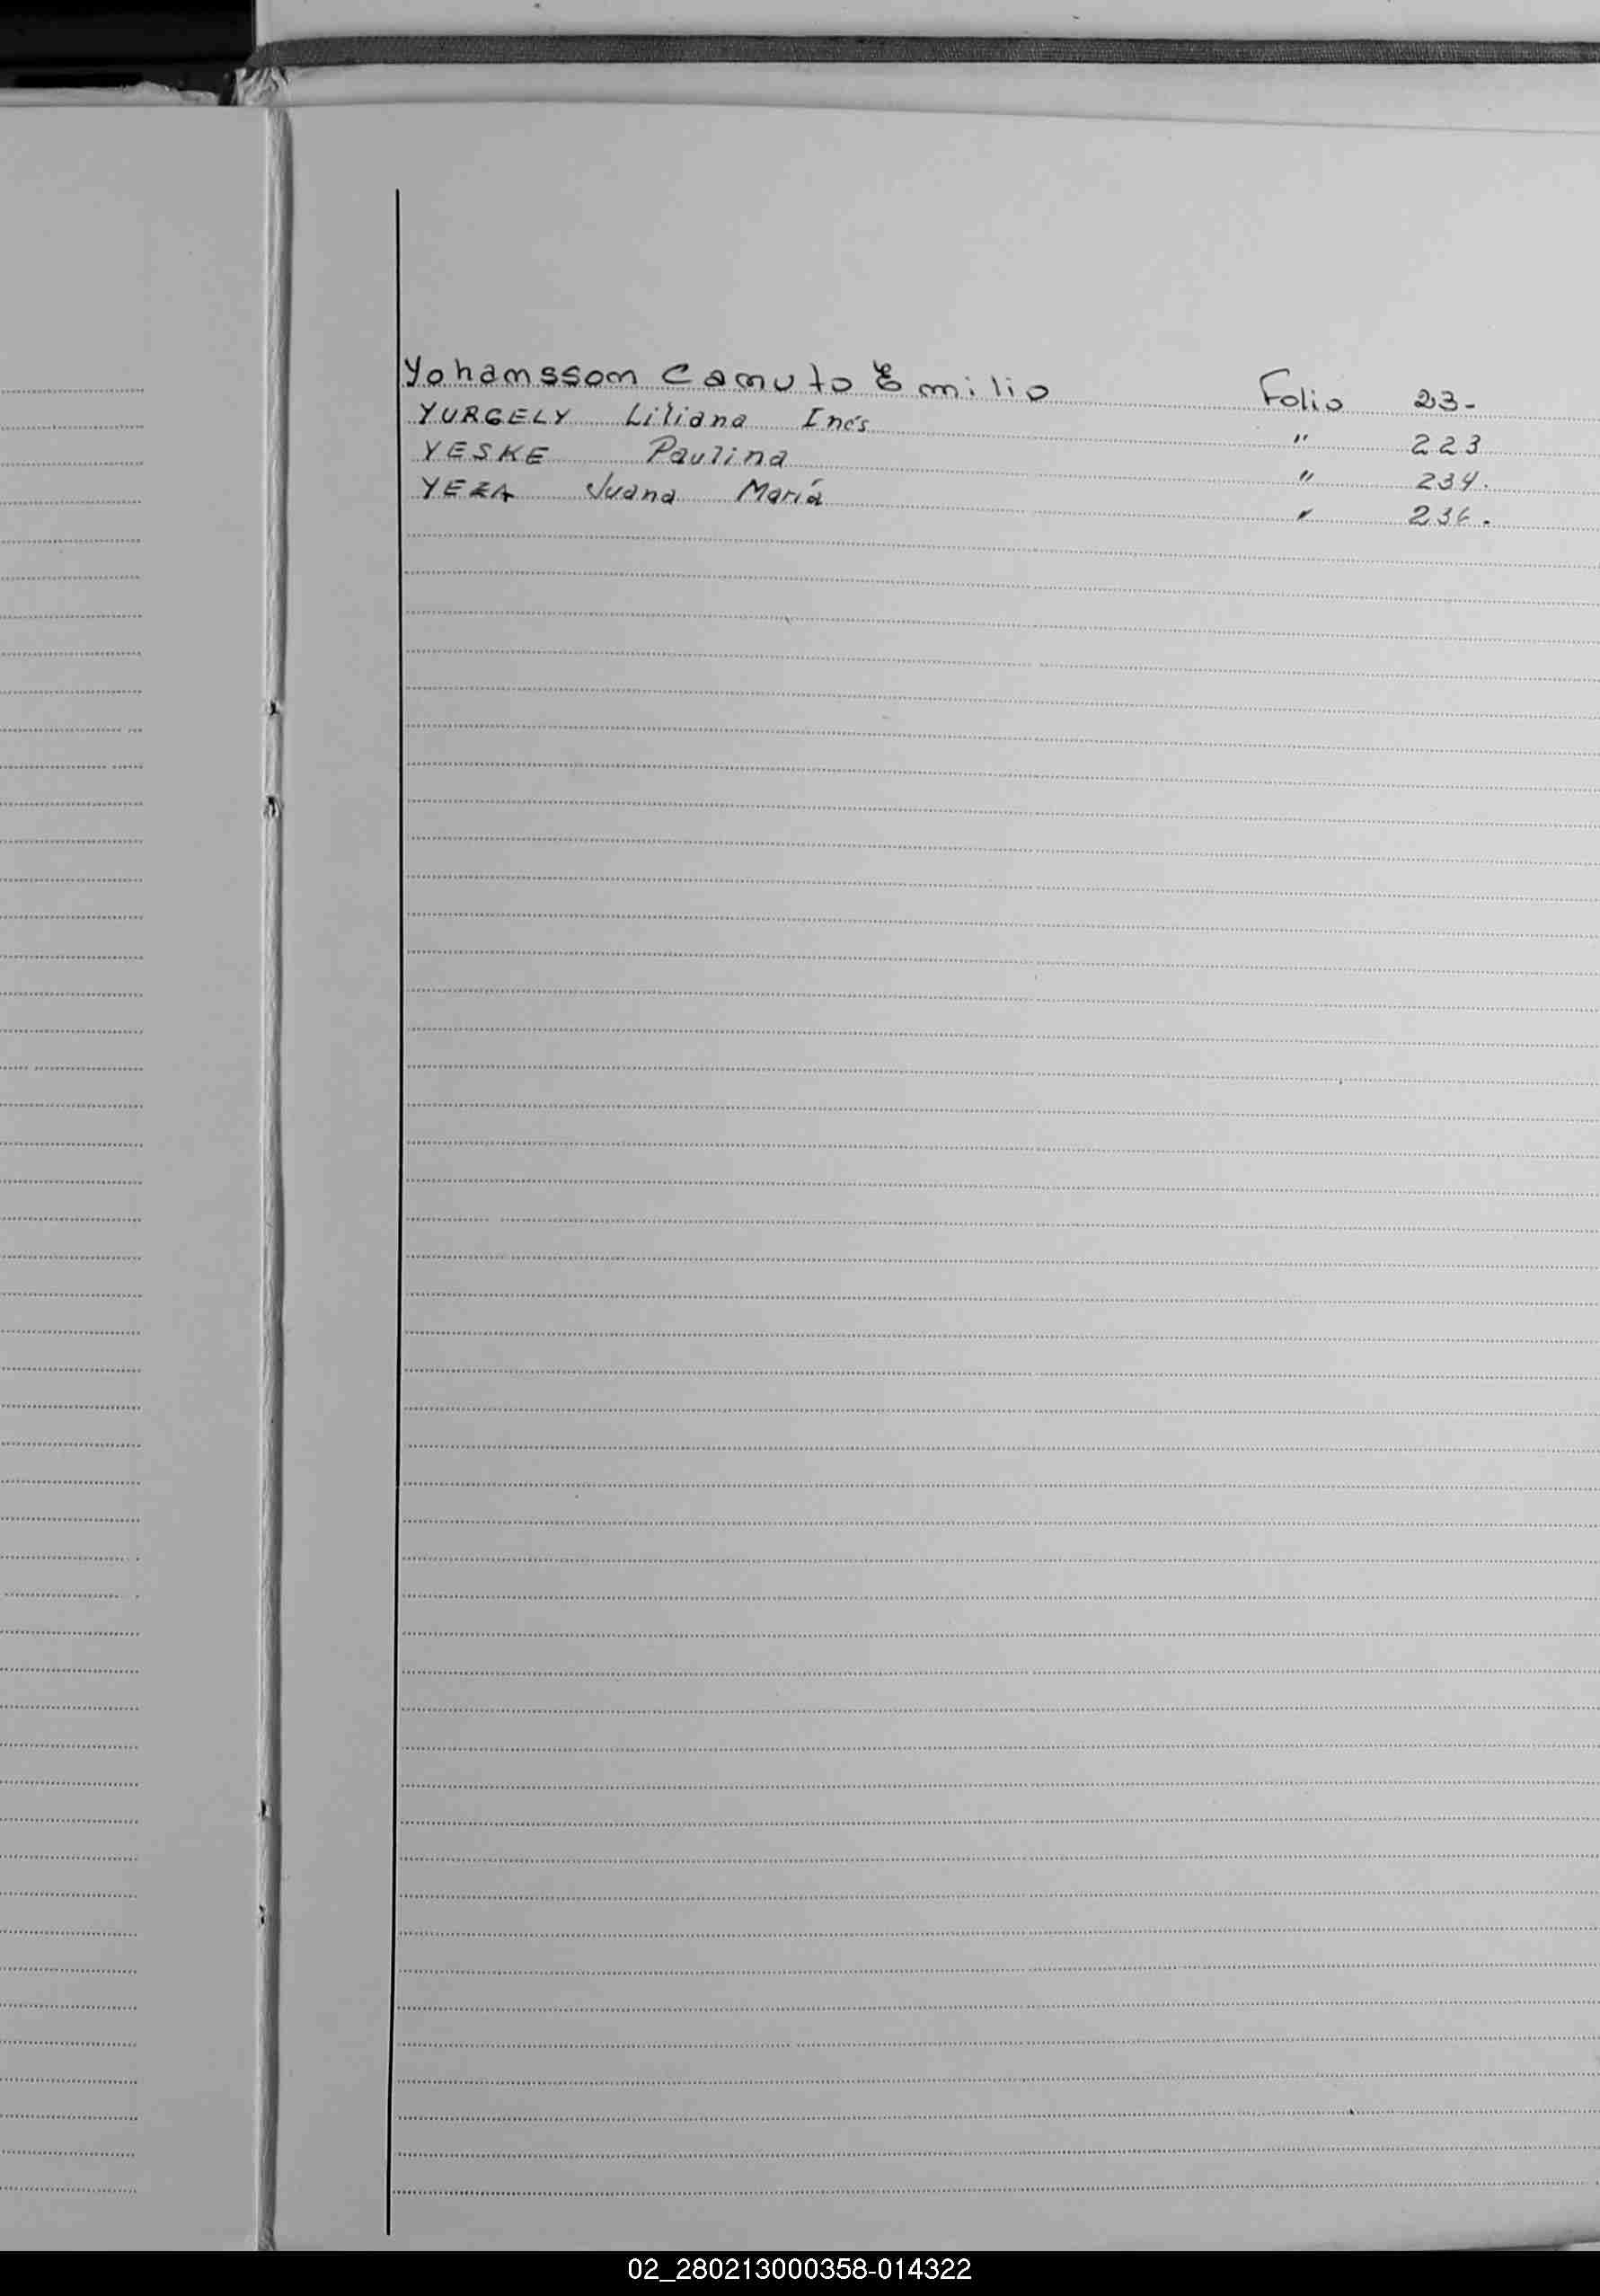 Yohamssom Camuto Emilio Folio 23-
YURGELY Liliana Inés " 223
YESKE Paulina " 234.
YEZA Juana María " 236.
02_280213000358-014322